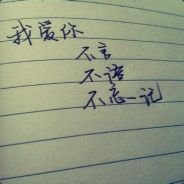 我爱你
不言
不语
不忘一记